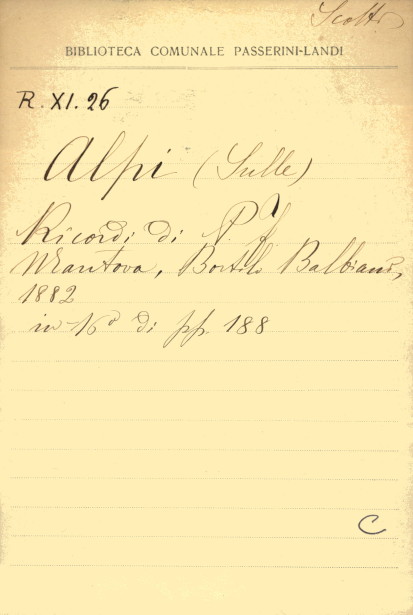 Scotti
BIBLIOTECA COMUNALE PASSERINI-LANDI
R. XI. 26
Alpi (Sulle)
Ricordi di P.
Mantova, Balbiani,
1882
in 16º di pp. 188
C